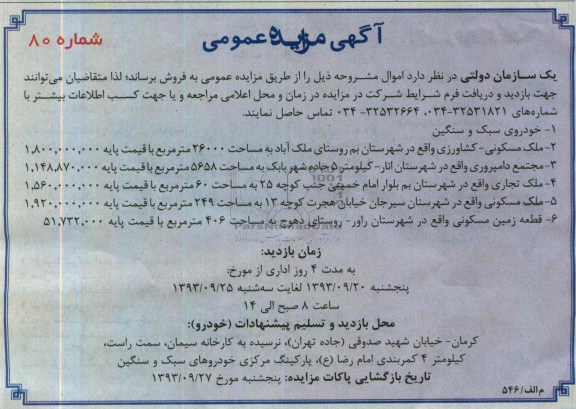 آگهی مزایده عمومی
شماره ۸۰
یک سازمان دولتی در نظر دارد اموال مشروحه ذیل را از طریق مزایده عمومی به فروش برساند؛ لذا متقاضیان می‌توانند
جهت بازدید و دریافت فرم شرایط شرکت در مزایده در زمان و محل اعلامی مراجعه و یا جهت کسب اطلاعات بیشتر با
شماره‌های ۳۲۵۳۱۸۲۱-۰۳۴، ۳۲۵۳۲۶۶۴- ۰۳۴ تماس حاصل نمایند.
۱- خودروی سبک و سنگین
۲-ملک مسکونی- کشاورزی واقع در شهرستان بم روستای ملک آباد به مساحت ۲۶۰۰۰ مترمربع با قیمت پایه ۱,۸۰۰,۰۰۰,۰۰۰
۳-مجتمع دامپروری واقع در شهرستان انار- کیلومتر ۵ جاده شهر بابک به مساحت ۵۶۵۸ مترمربع با قیمت پایه ۱,۱۴۸,۸۷۰,۰۰۰
۴-ملک تجاری واقع در شهرستان بم بلوار امام خمینی جنب کوچه ۲۵ به مساحت ۶۰ مترمربع با قیمت پایه ۱,۵۶۰,۰۰۰,۰۰۰
۵-ملک مسکونی واقع در شهرستان سیرجان خیابان هجرت کوچه ۱۳ به مساحت ۲۴۹ مترمربع با قیمت پایه ۱,۹۲۰,۰۰۰,۰۰۰
۶- قطعه زمین مسکونی واقع در شهرستان راور- روستای دهوج به مساحت ۴۰۶ مترمربع با قیمت پایه ۵۱,۷۳۲,۰۰۰
زمان بازدید:
به مدت ۴ روز اداری از مورخ:
پنجشنبه ۱۳۹۳/۰۹/۲۰ لغایت سه‌شنبه ۱۳۹۳/۰۹/۲۵
ساعت ۸ صبح الی ۱۴
محل بازدید و تسلیم پیشنهادات (خودرو):
کرمان- خیابان شهید صدوقی (جاده تهران)، نرسیده به کارخانه سیمان، سمت راست،
کیلومتر ۴ کمربندی امام رضا (ع)، پارکینگ مرکزی خودروهای سبک و سنگین
تاریخ بازگشایی پاکات مزایده: پنجشنبه مورخ ۱۳۹۳/۰۹/۲۷
م الف/۵۴۶